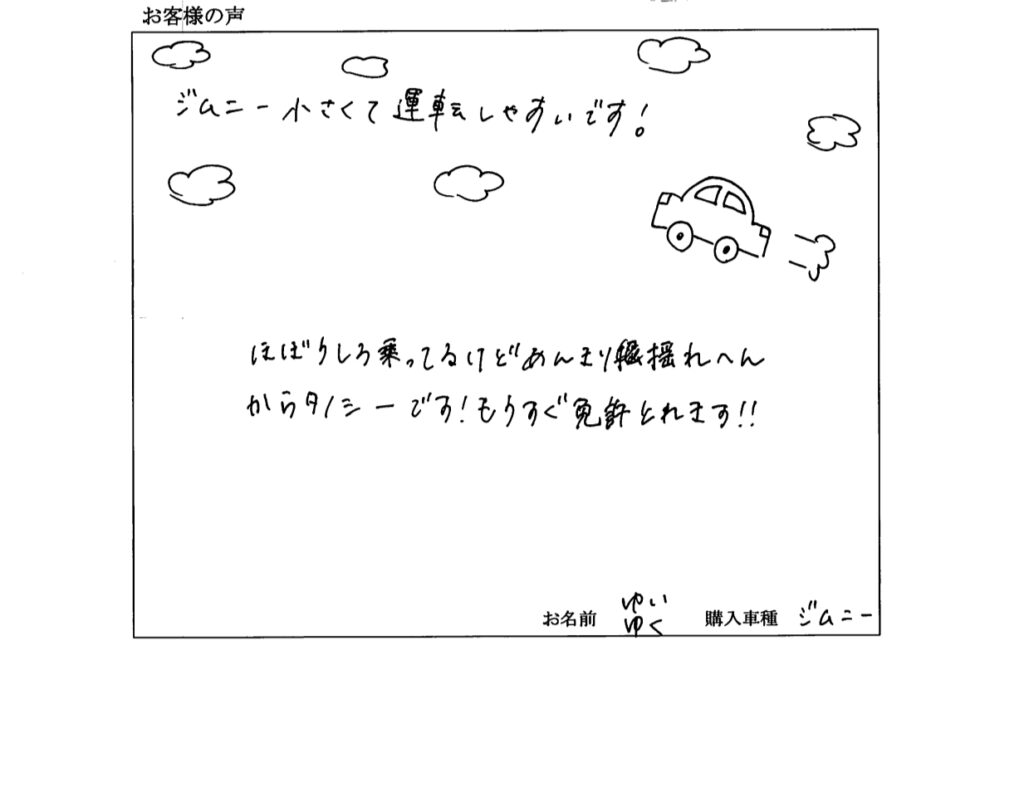 お客様の声
ジムニー小さくて運転しやすいです!
ほぼうしろ乗ってるけどあんまり揺れへん
からタノシーです!もうすぐ免許とれます!!
お名前 ゆい ゆく 購入車種 ジムニー